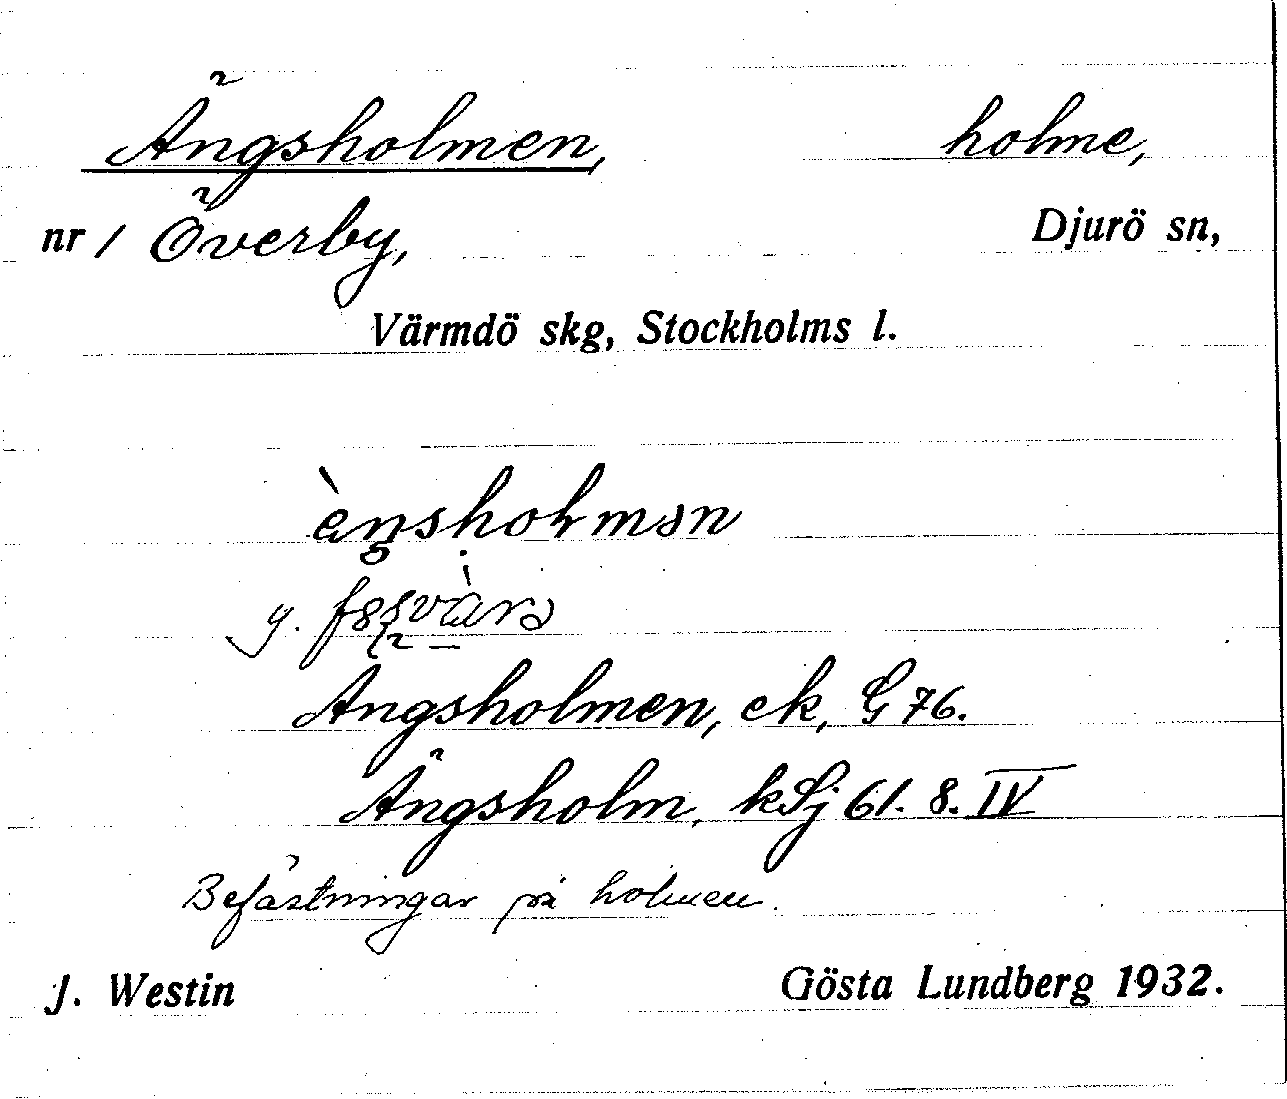 Ängsholmen, holme,
nr 1 Överby, Djurö sn,
Värmdö skg, Stockholms l.
y.
Ängsholmen, ek, G 76.
Ängsholm, kSj 61. 8. IV
Befästningar på holmen.
J. Westin Gösta Lundberg 1932.